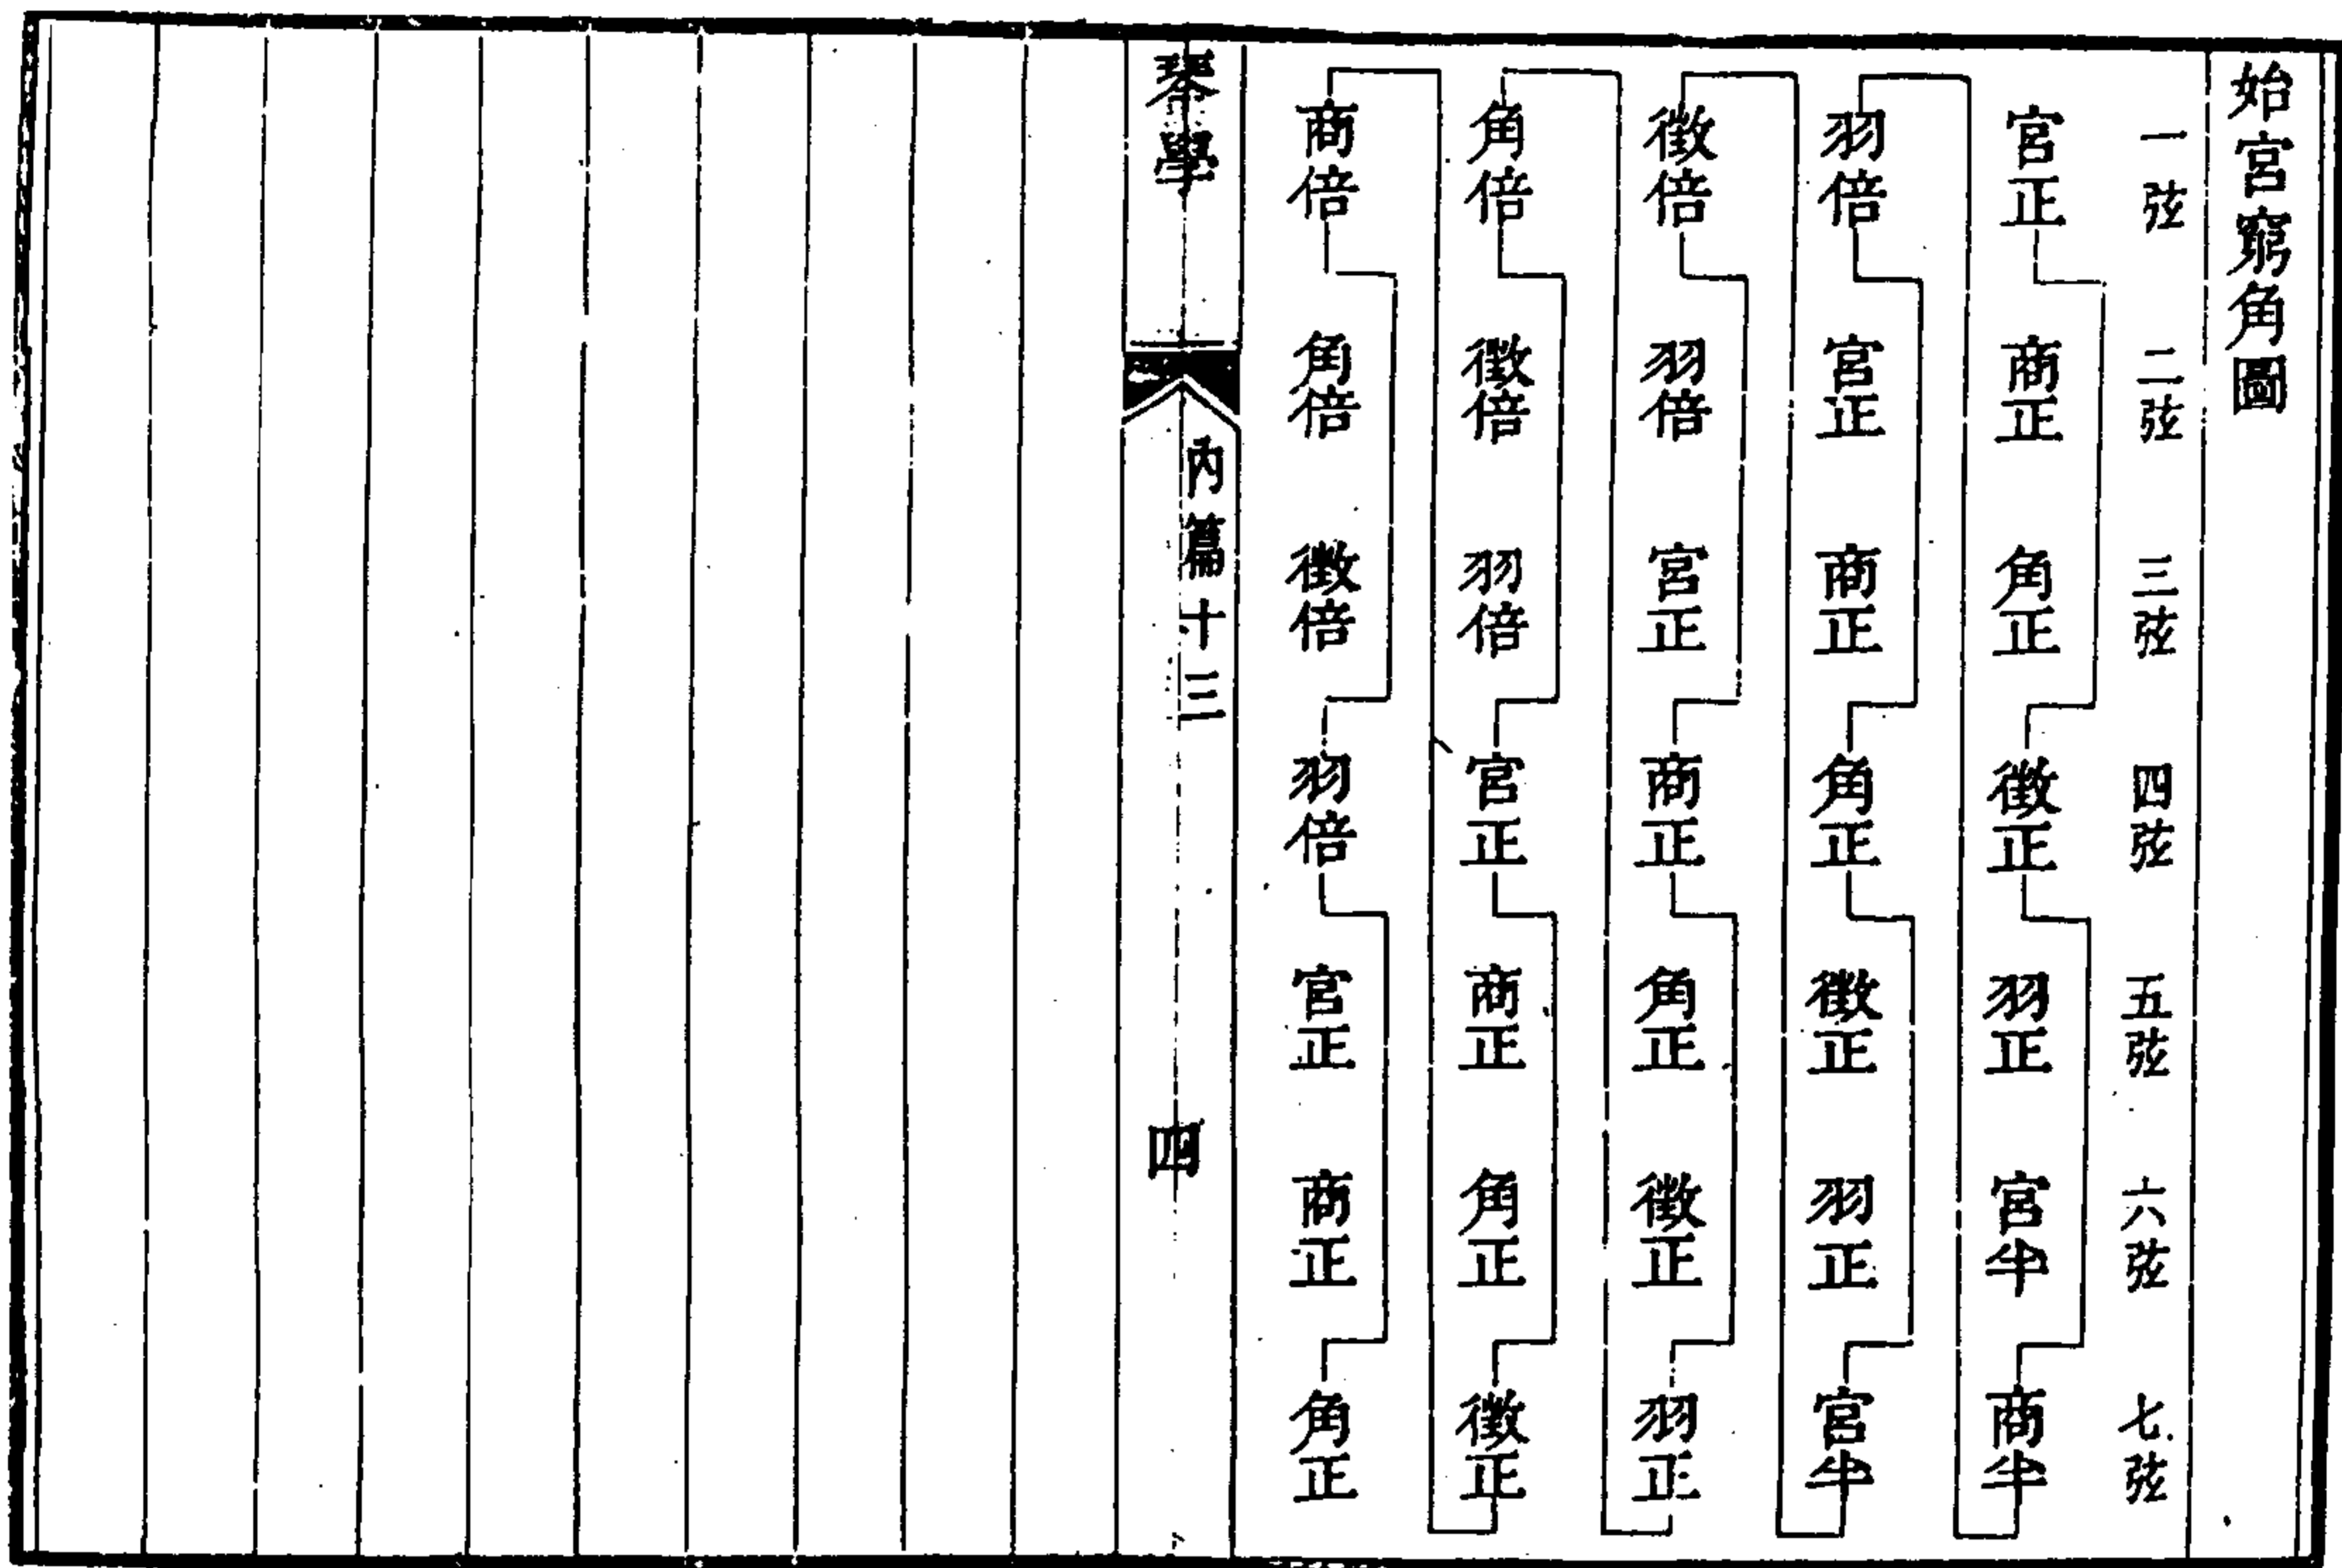 始宮窮角圖
一弦 二弦 三弦 四弦 五弦 六弦 七弦
宮正 商正 角正 徵正 羽正 宮半 商半
羽倍 宮正 商正 角正 徵正 羽正 宮半
徵倍 羽倍 宮正 商正 角正 徵正 羽正
角倍 徵倍 羽倍 宮正 商正 角正 徵正
商倍 角倍 徵倍 羽倍 宮正 商正 角正
琴學 內篇十三 四